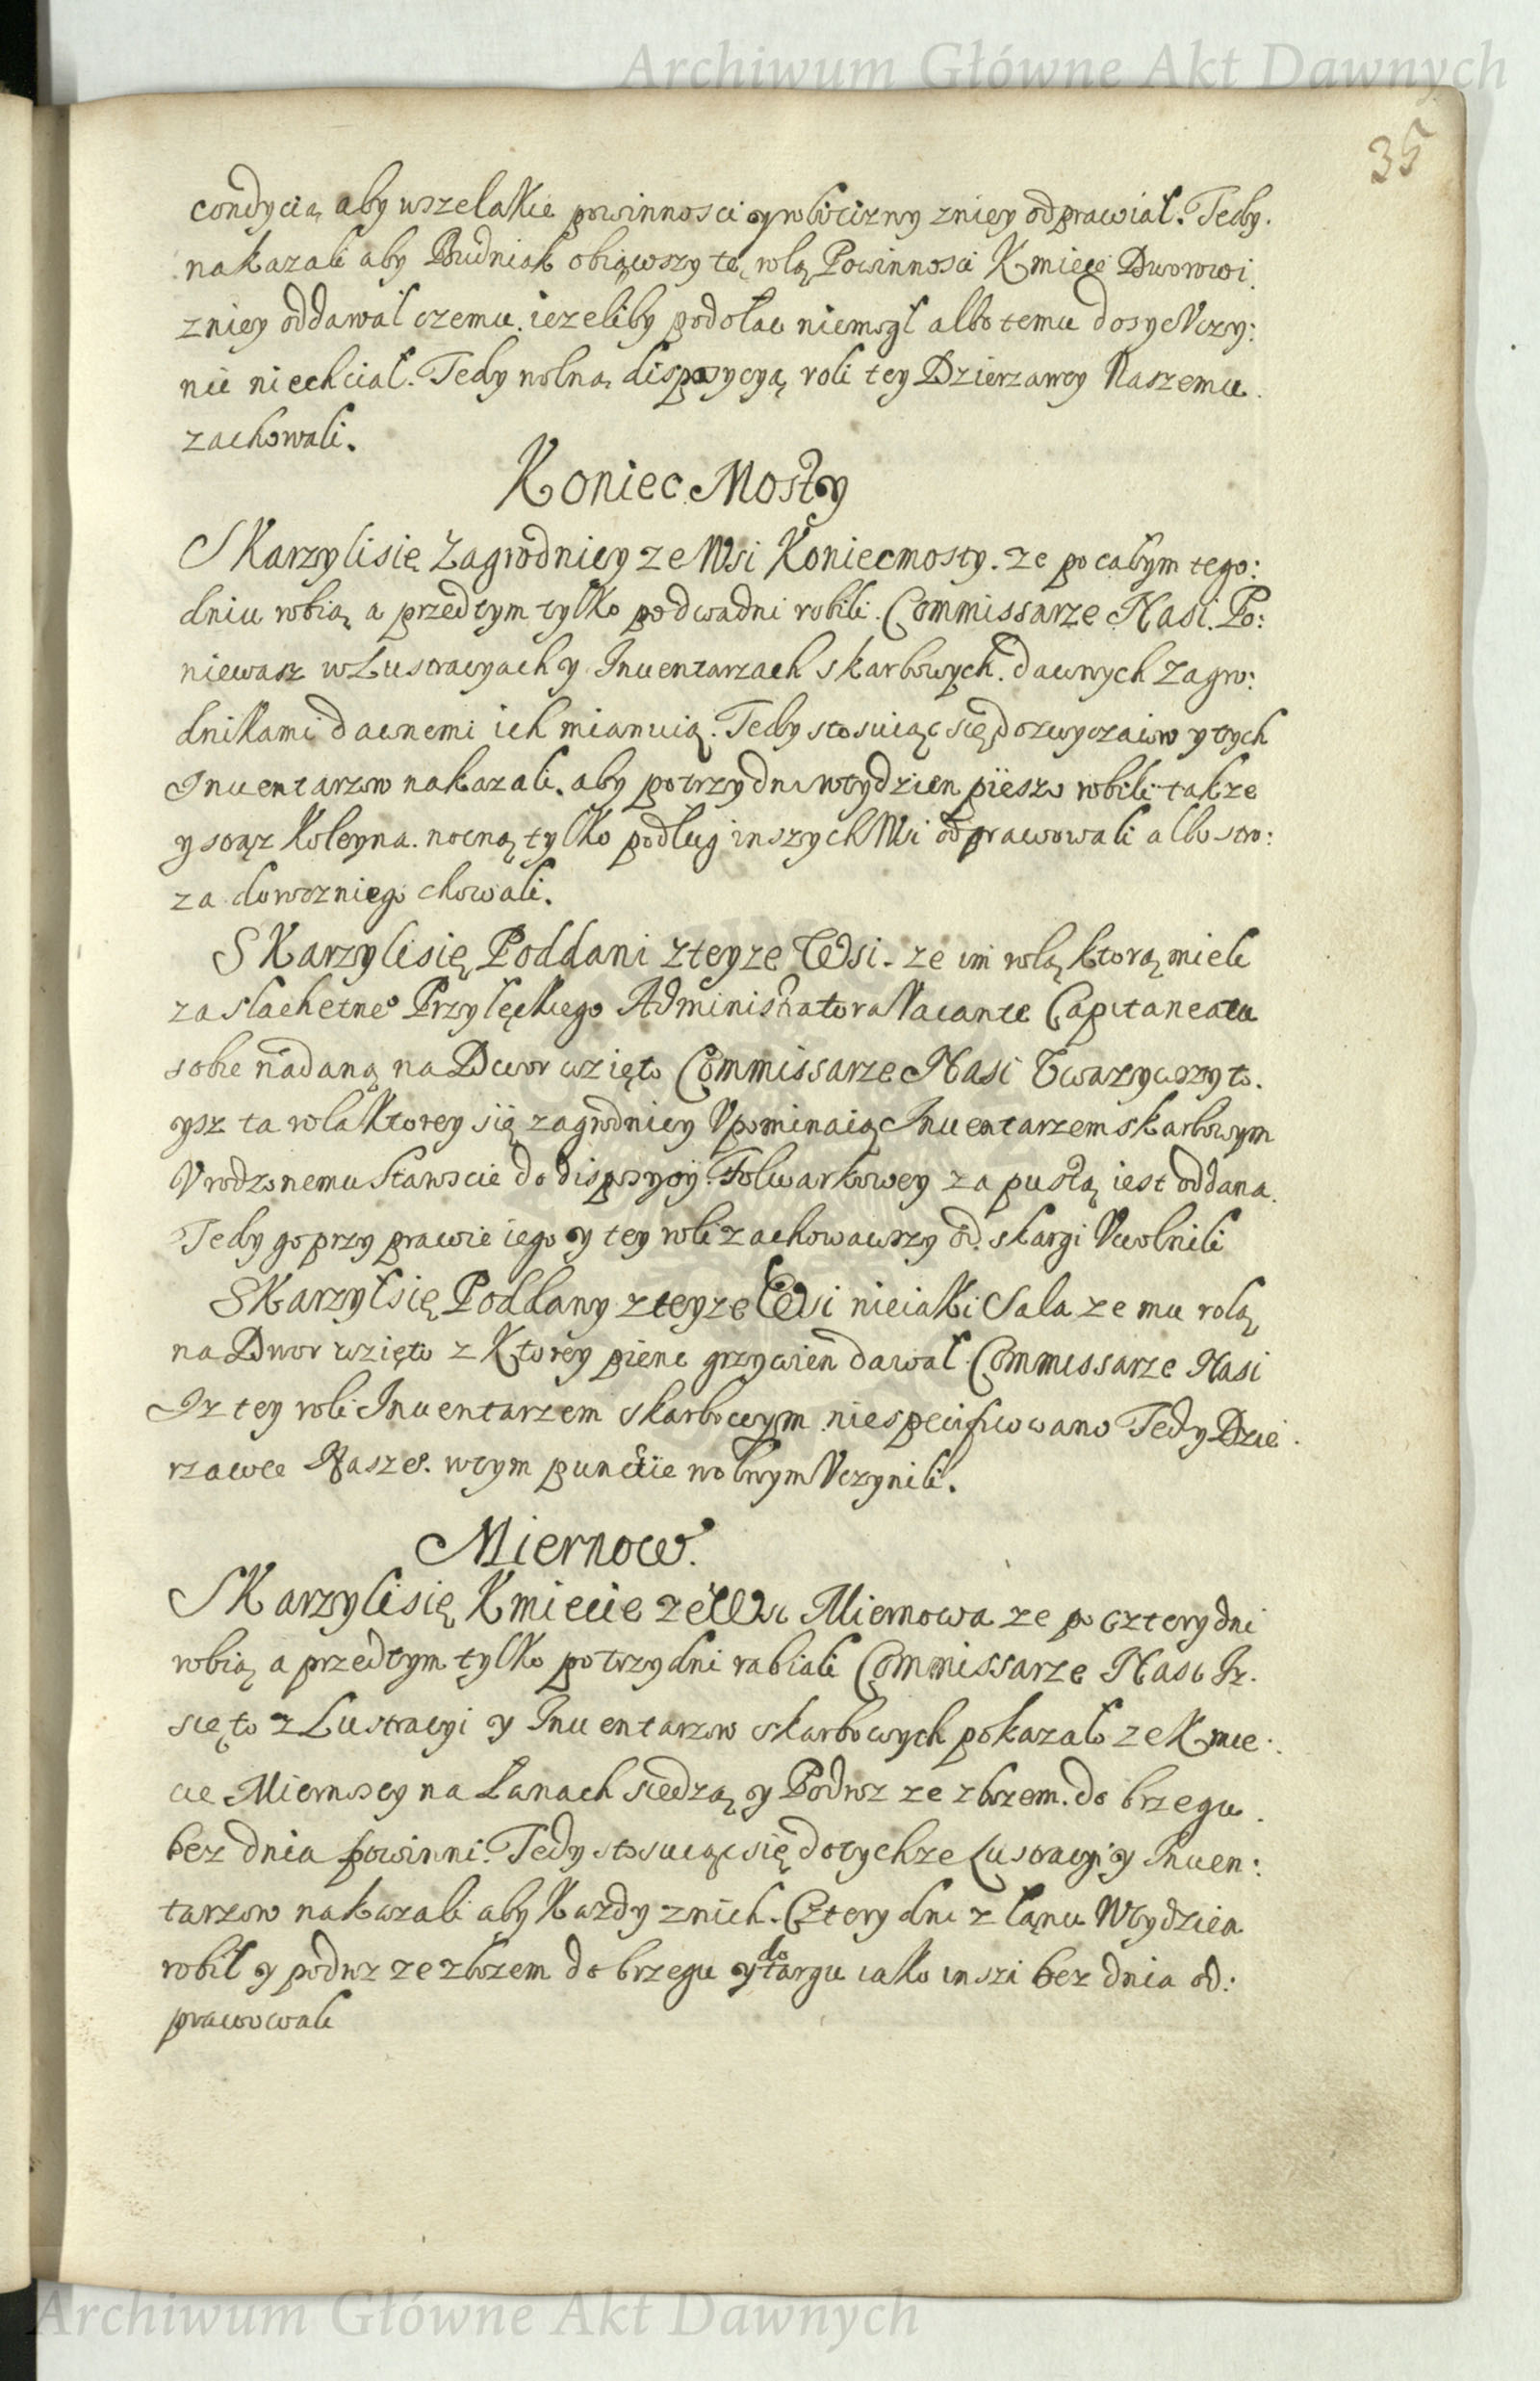 Archiwum Główne Akt Dawnych
35
condycią aby wszelakie powinnosci y robocizny zniey odprawiał. Tedy.
nakazali aby Budniak obiąwszy tę rolą Powinnosci Kmiece Dworowi.
zniey oddawał czemu. iezeliby podołac niemogł albo temu dosyc Vczy:
nic niechciał. Tedy wolną dispozycyą roli tey Dzierzawcy Naszemu.
zachowali.
Koniec Mosty
SKarzylisię Zagrodnicy ze Wsi Koniecmosty. ze po całym tego:
dniu robią a przedtym tylko podwadni robili. Commissarze Nasi. Po:
niewasz w Lustracyach y Inuentarzach skarbowych. dawnych zagro:
dnikami dawnemi ich mianuią. Tedy stosuiąc się do zwyczaiow y tych
Inuentarzow nakazali. aby potrzy dni wtydzien pieszo robili takze
y straz Koleyna. nocną tylko podług inszych Wsi odprawowali albo stro:
za doroczniego chowali.
SKarzylisię Poddani zteyze Wsi. ze im rolą ktorą mieli
za slachetneo Przyłęckiego Administratora Vacante Capitaneatu
sobie nadaną na Dwor wzięto Commissarze Nasi Vwazywszy to.
ysz ta rola Ktorey się zagrodnicy Vpominaią Inuentarzem skarbowym
Vrodzonemu Staroscie do dispozycyi. Folwarkowey za pustą iest oddana.
Tedy go przy prawie iego y tey roli zachowawszy od. skargi Vwolnili
SKarzyłsię Poddany zteyze Wsi nieiaki Sala ze mu rolą
na Dwor wzięto z Ktorey pięnc grzywien dawał. Commissarze Nasi
Iz tey roli Inuentarzem skarbowym niespecifiowano Tedy Dzie.
rzawce Naszeo. wtym punctie wolnym Vczynili.
Miernow.
SKarzylisię Kmiecie ze Wsi Miernowa ze po cztery dni
robią a przedtym tylko po trzy dni rabiali Commissarze Nasi Iz.
się to z Lustracyi y Inuentarzow skarbowych pokazało ze Kmie:
cie Miernoscy na Łanach siedzą y Podwoz ze zbozem. do brzegu.
bez dnia powinni. Tedy stosuiąc się do tychze Lustracyi y Inuen:
tarzow nakazali aby Kazdy znich. Cztery dni z łanu Wtydzien
robił y podwoz ze zbozem do brzegu y do targu iako inszi bez dnia od:
prawowali
Archiwum Główne Akt Dawnych